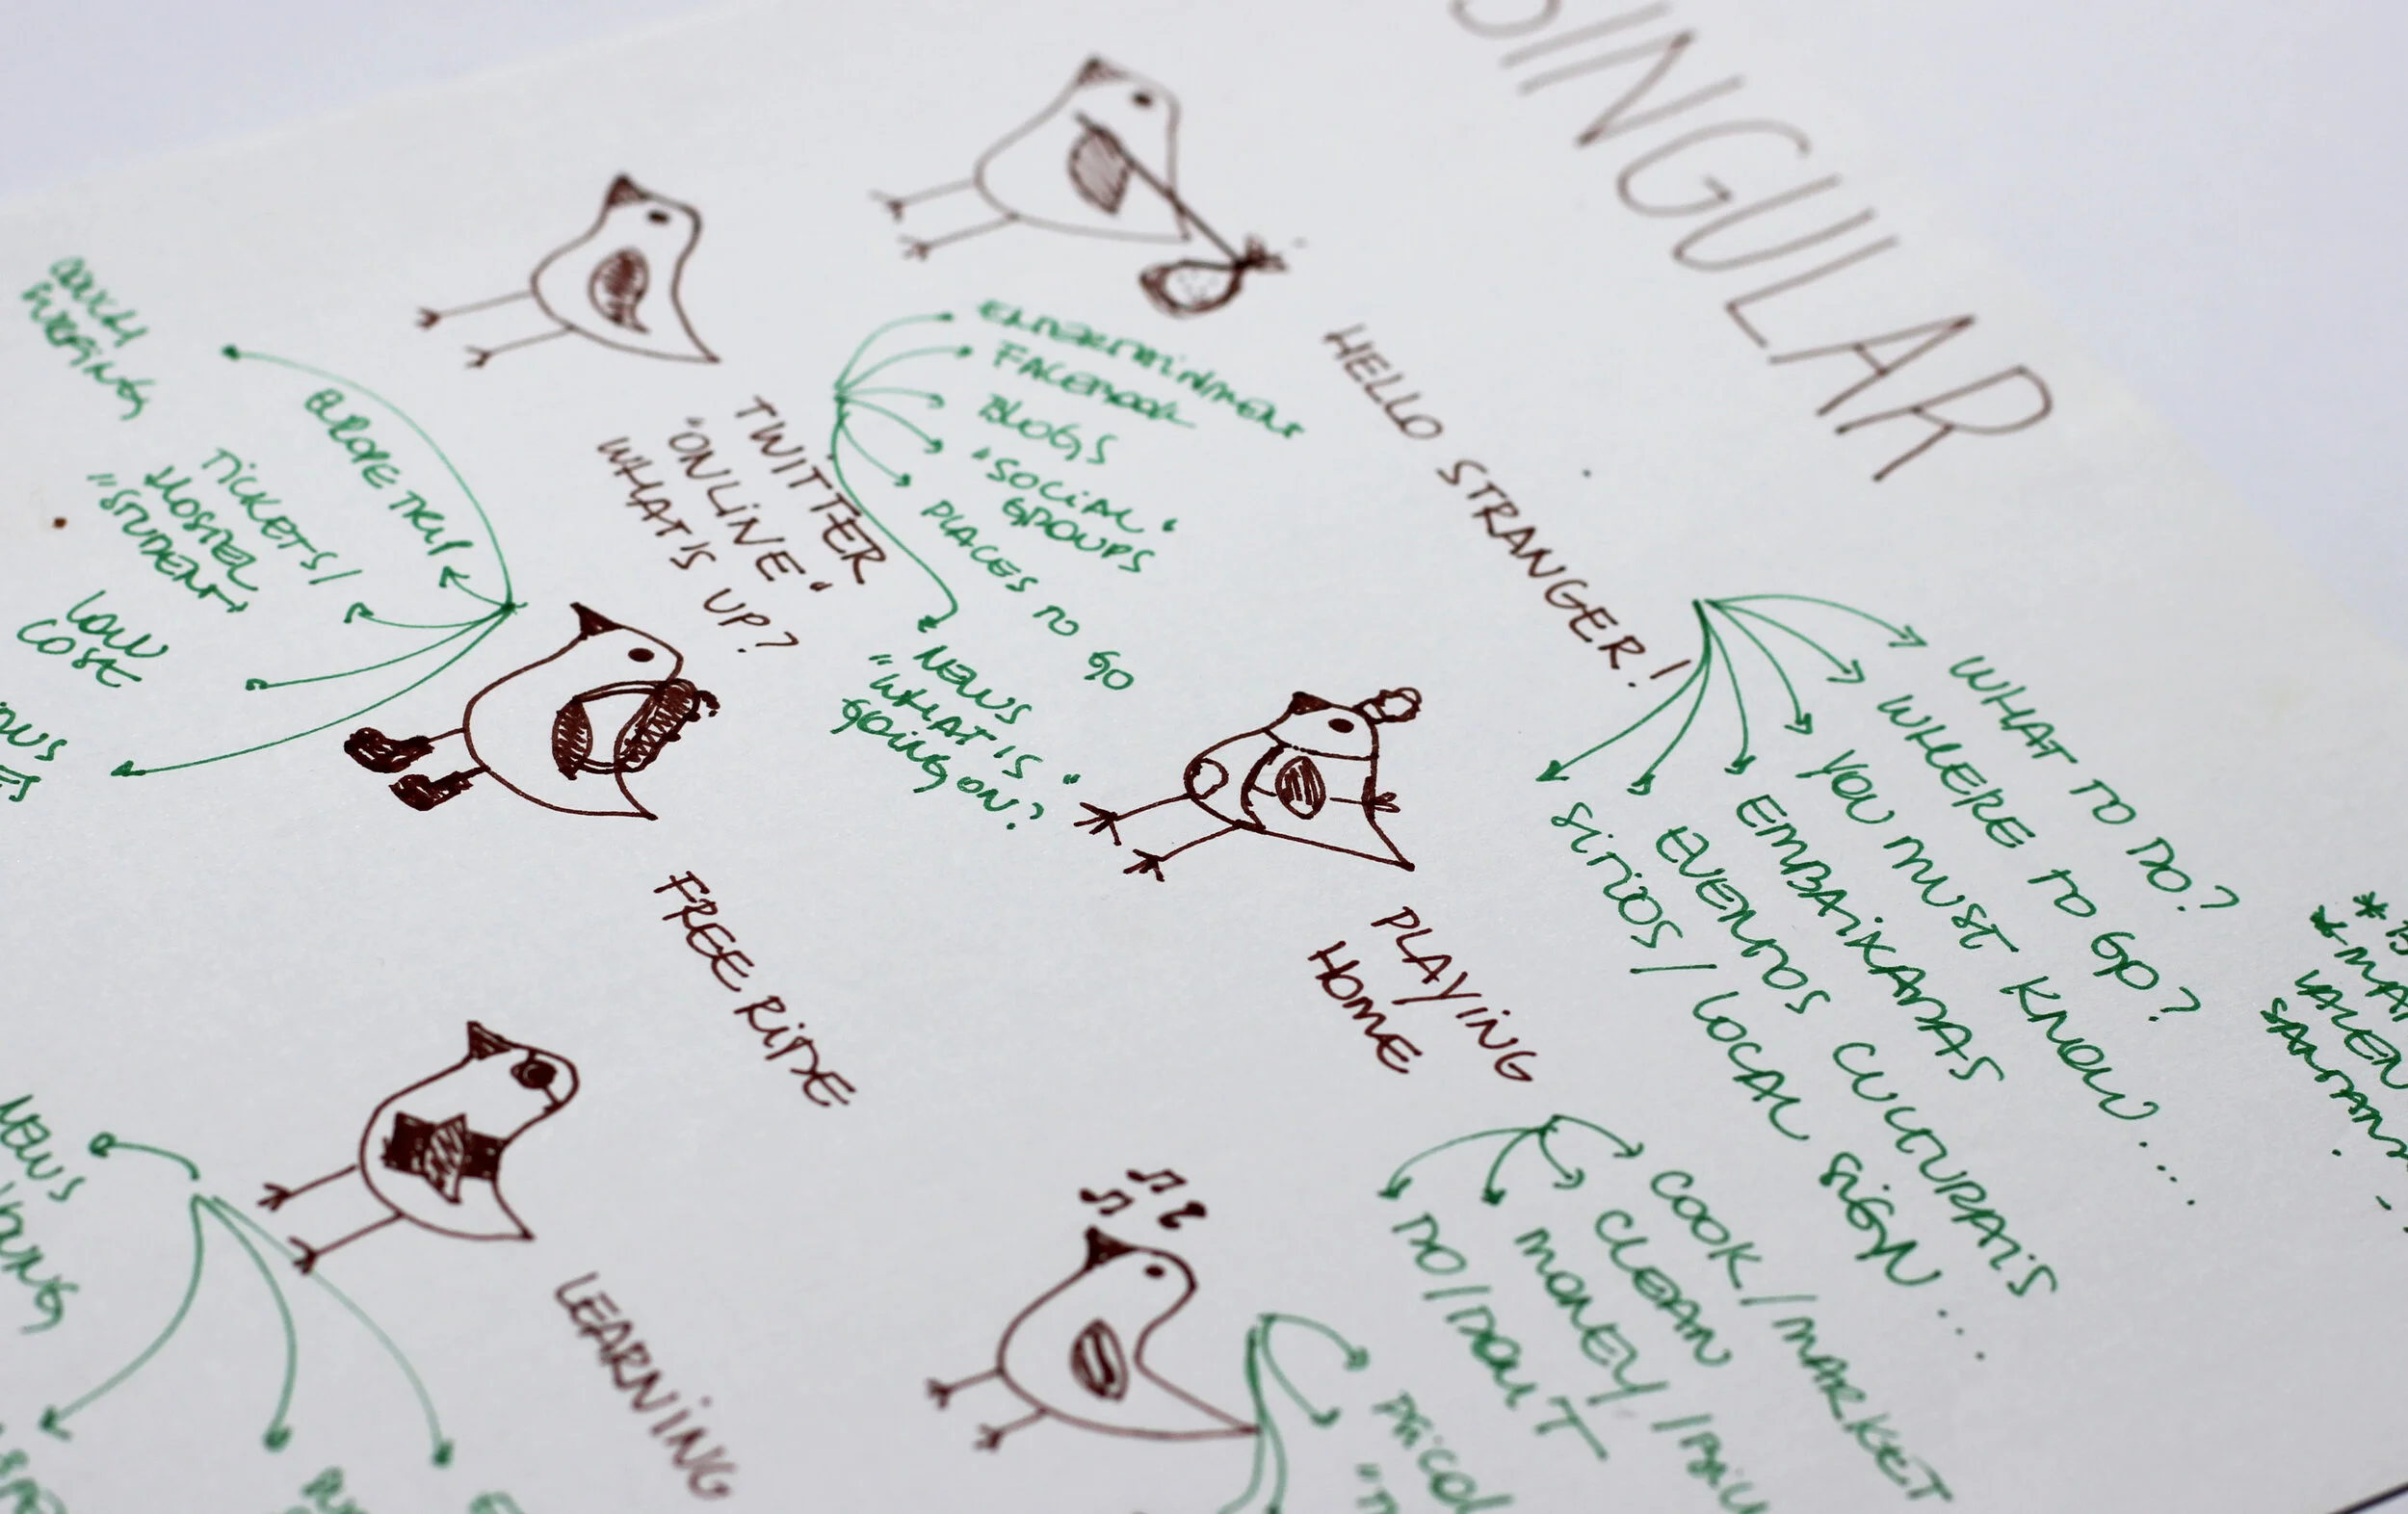 SINGULAR
HELLO STRANGER!
WHAT TO DO?
WHERE TO GO?
YOU MUST KNOW...
EMBAIXADAS
EVENTOS CULTURAIS
SITIOS / LOCAL SIGN...
TWITTER
"ONLINE"
WHAT'S UP?
ENTERTAINMENT
FACEBOOK
BLOGS
"SOCIAL"
GROUPS
PLACES TO GO
NEWS
"WHAT IS
GOING ON?"
PLAYING
HOME
COOK / MARKET
CLEAN
MONEY /
DO / DON'T
FREE RIDE
COUCH
SURFING
EUROPE TRIP
TICKETS /
HOSTEL
"STUDENT"
LOW
COST
LEARNING
NEWS